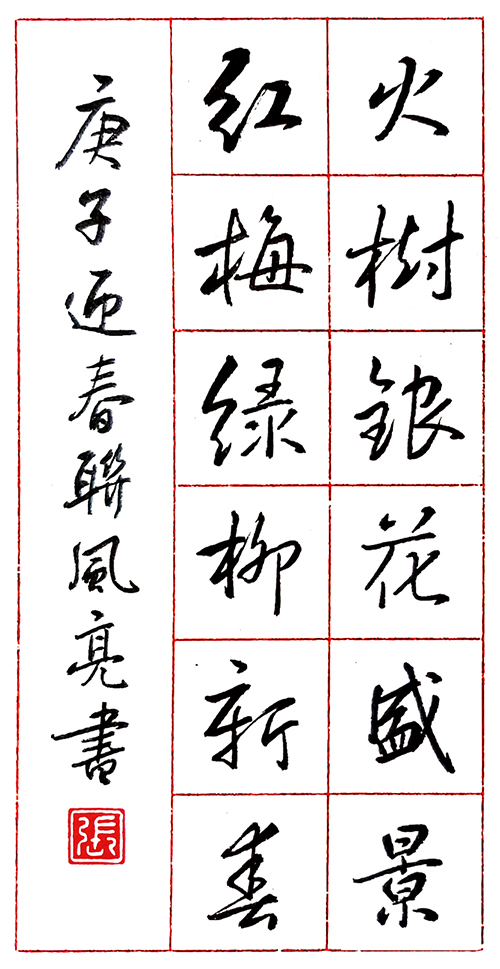 火樹銀花盛景
紅梅绿柳新春
庚子迎春聯風亮書
張